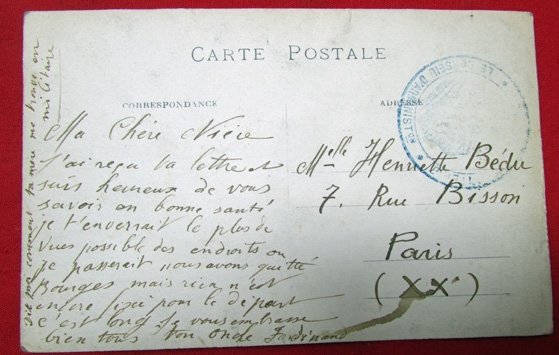 CARTE POSTALE
CORRESPONDANCE
ADRESSE
Ma Chère Nièce
J'ai reçu ta lettre et
suis heureux de vous
savoir en bonne santé
je t'enverrait le plus de
vues possible des endroits ou
je passerait nous avons quitté
Bourges mais rien n est
encore fixé pour le départ
c'est long je vous embrasse
bien tous ton oncle Ferdinand
Dis moi comment ta mère me trouve en
militaire
Melle Henriette Bédu
7. Rue Bisson
Paris
(XXe)
LE CONSEIL D'ADMINISTON